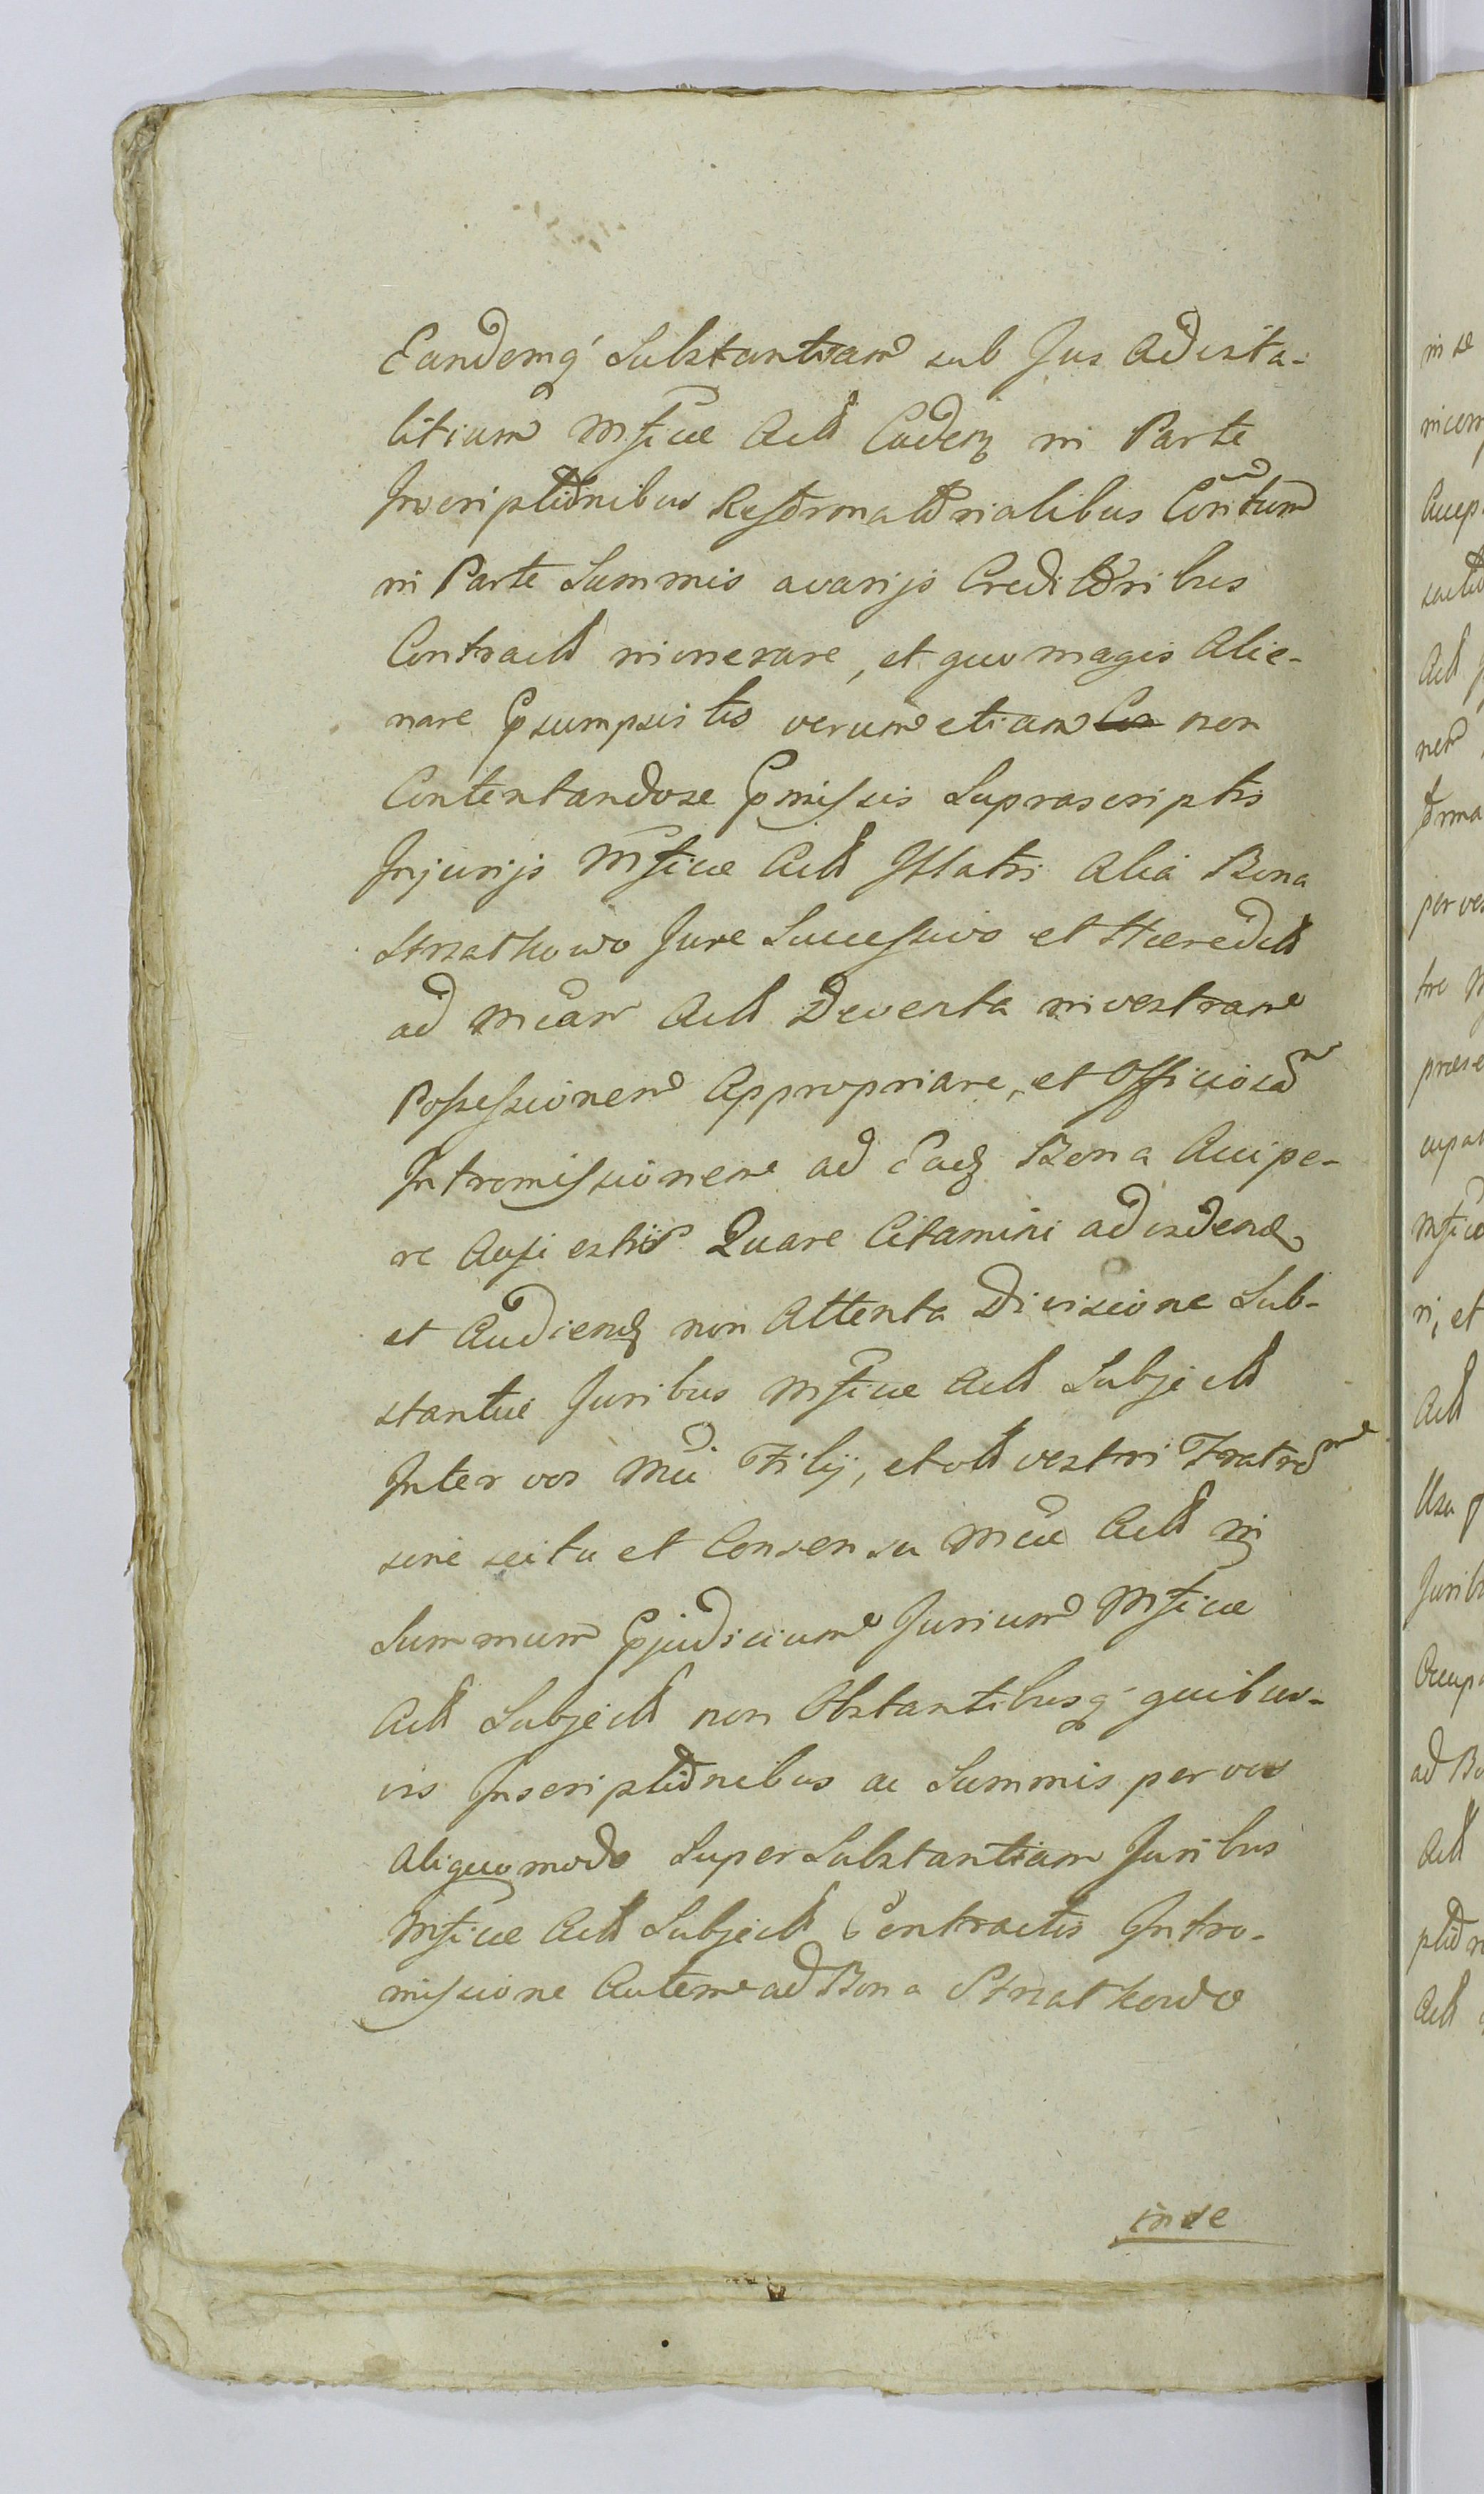 Eandemq́ Substantiam sub Jus Advita-
litium Mficæ Act̃ Cadeñ in Parte
Inscriptionibus Reformatorialibus Coñtum
in Parte Summis avarijs Creditoribus
Contract̃ inonerare, et quo magis Alie-
nare p̃sumpsistis verum etiam non
Contentandose p̃missis Suprascriptis
Injurijs Mficæ Act̃ Illatis Alia Bona
Strzatkowo Jure Successivo et Hæredit̃
ad Mcam Act̃ Deventa in vestram
Possessionem Appropriare, et Officiosam
Intromissionem ad Eadz Bona Accipe-
re Ausi estis Quare Citamini ad videnđ
et Audienđ non Attenta Divisione Sub-
stantiæ Juribus Mficæ Act̃ Subject̃
Inter vos Mci Filij, et olt̃ vestri Fratrem
sine scitu et Consensu Mcæ Act̃ in
Summum p̃judicium Jurium Mficæ
Act̃ Subject̃ non Obstantibusq́ quibus-
vis Inscriptionibus ac Summis per vos
Aliquomodo Super Substantiam Juribus
Mficæ Act̃ Subject̃ Contractis Intro-
missione Autem ad Bona Strzatkowo
inde